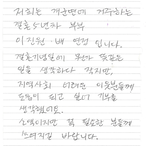 저희는 계룡면에 거주하는
결혼 5년차 부부
이진원·배연정 입니다.
결혼기념일에 뭔가 뜻깊은
일을 생각하다 적지만,
지역사회 어려운 이웃분들께
도움이 되고 싶어 기부를
생각했어요.
소액이지만 꼭 필요한 분들께
쓰여지길 바랍니다.